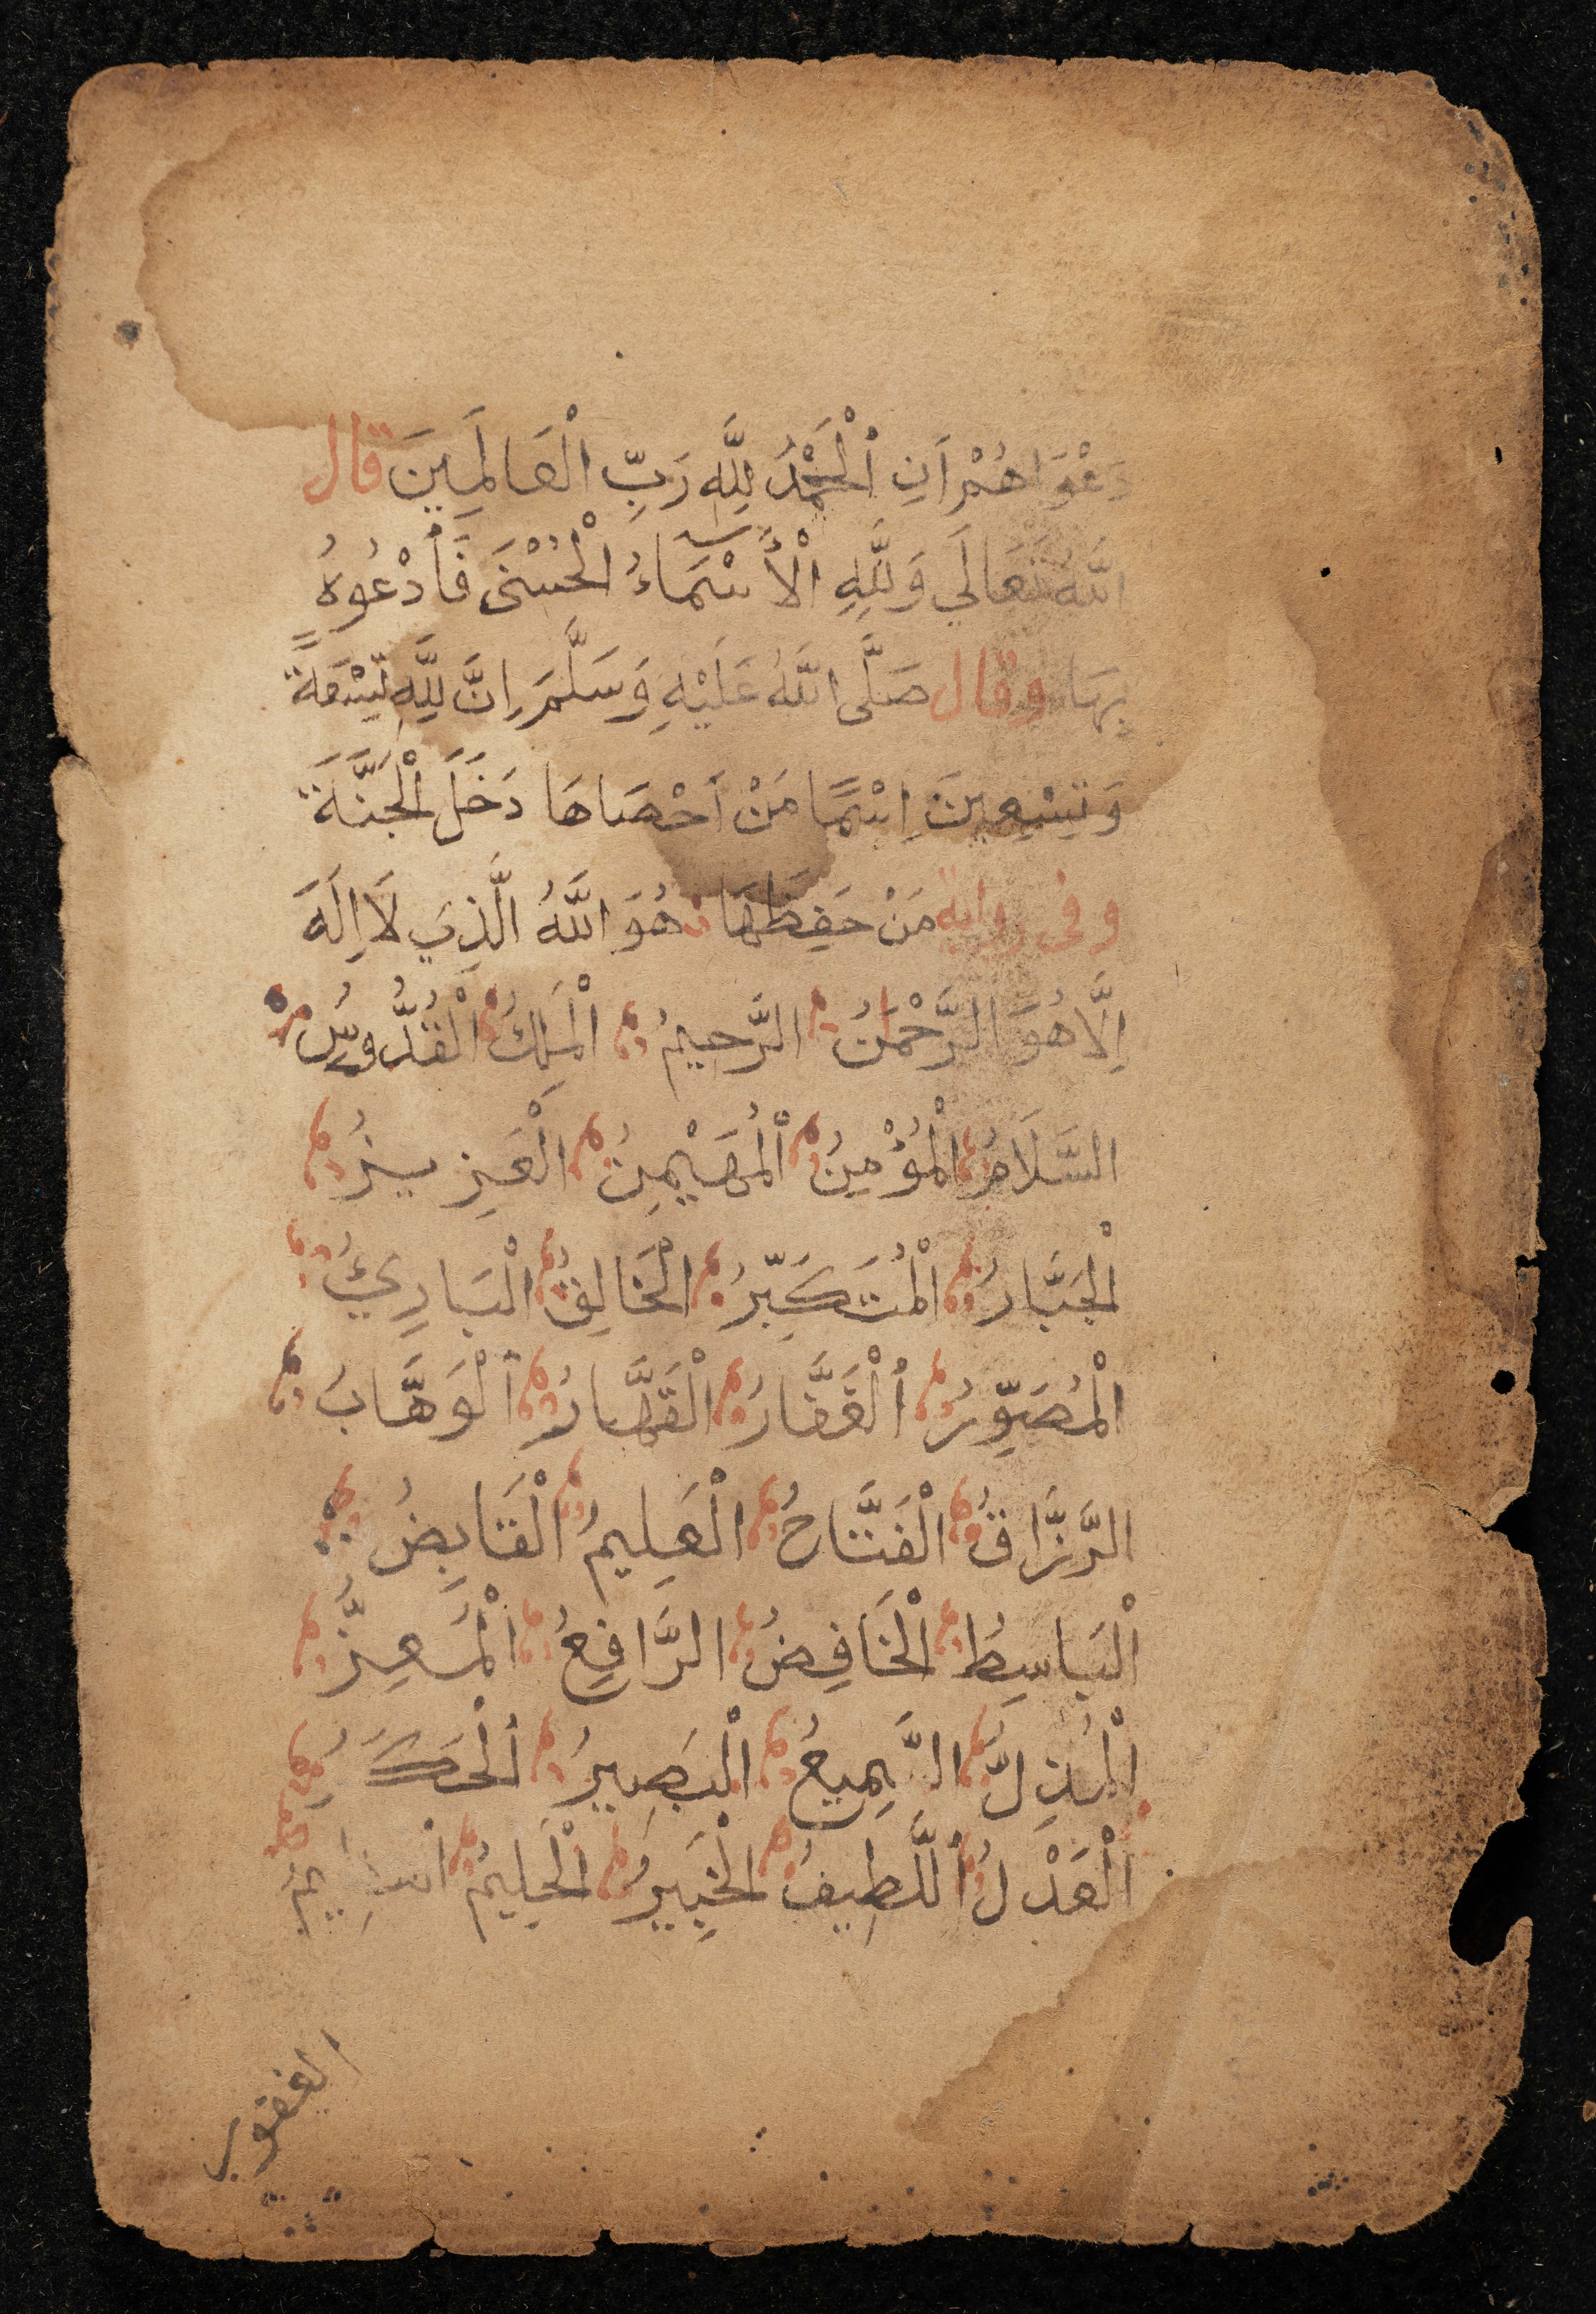 دَعْوَاهُمْ اَنِ اْلْحَمْدُ لِلَّهِ رَبِّ الْعَالَمِينَ قال
اللَّهُ تَعَالَي وَلِلَّهِ الْأَسْمَاءُ الْحُسْنَى فَادْعُوهُ
بِهَا وقال صَلَّى اللَّهُ عَلَيْهِ وَسَلَّمَ اِنَّ لِلَّهِ تِسْعَةً
وَتِسْعِينَ اِسْمًا مَنْ اَحْصَاهَا دَخَلَ الْجَنَّةَ
وفى رواية مَنْ حَفِظَهَا هُوَ اللَّهُ الَّذِي لَا اِلَهَ
اِلَّا هُوَ الرَّحْمَنُ الرَّحِيمُ الْمَلِكُ الْقُدُّوسُ
السَّلَامُ الْمُؤْمِنُ الْمُهَيْمِنُ الْعَزِيزُ
الْجَبَّارُ الْمُتَكَبِّرُ الْخَالِقُ الْبَارِئُ
الْمُصَوِّرُ الْغَفَّارُ الْقَهَّارُ الْوَهَّابُ
الرَّزَّاقُ الْفَتَّاحُ الْعَلِيمُ الْقَابِضُ
الْبَاسِطُ الْخَافِضُ الرَّافِعُ الْمُعِزُّ
الْمُذِلُّ السَّمِيعُ الْبَصِيرُ الْحَكَمُ
الْعَدْلُ اللَّطِيفُ الْخَبِيرُ الْحَلِيمُ
الغفور